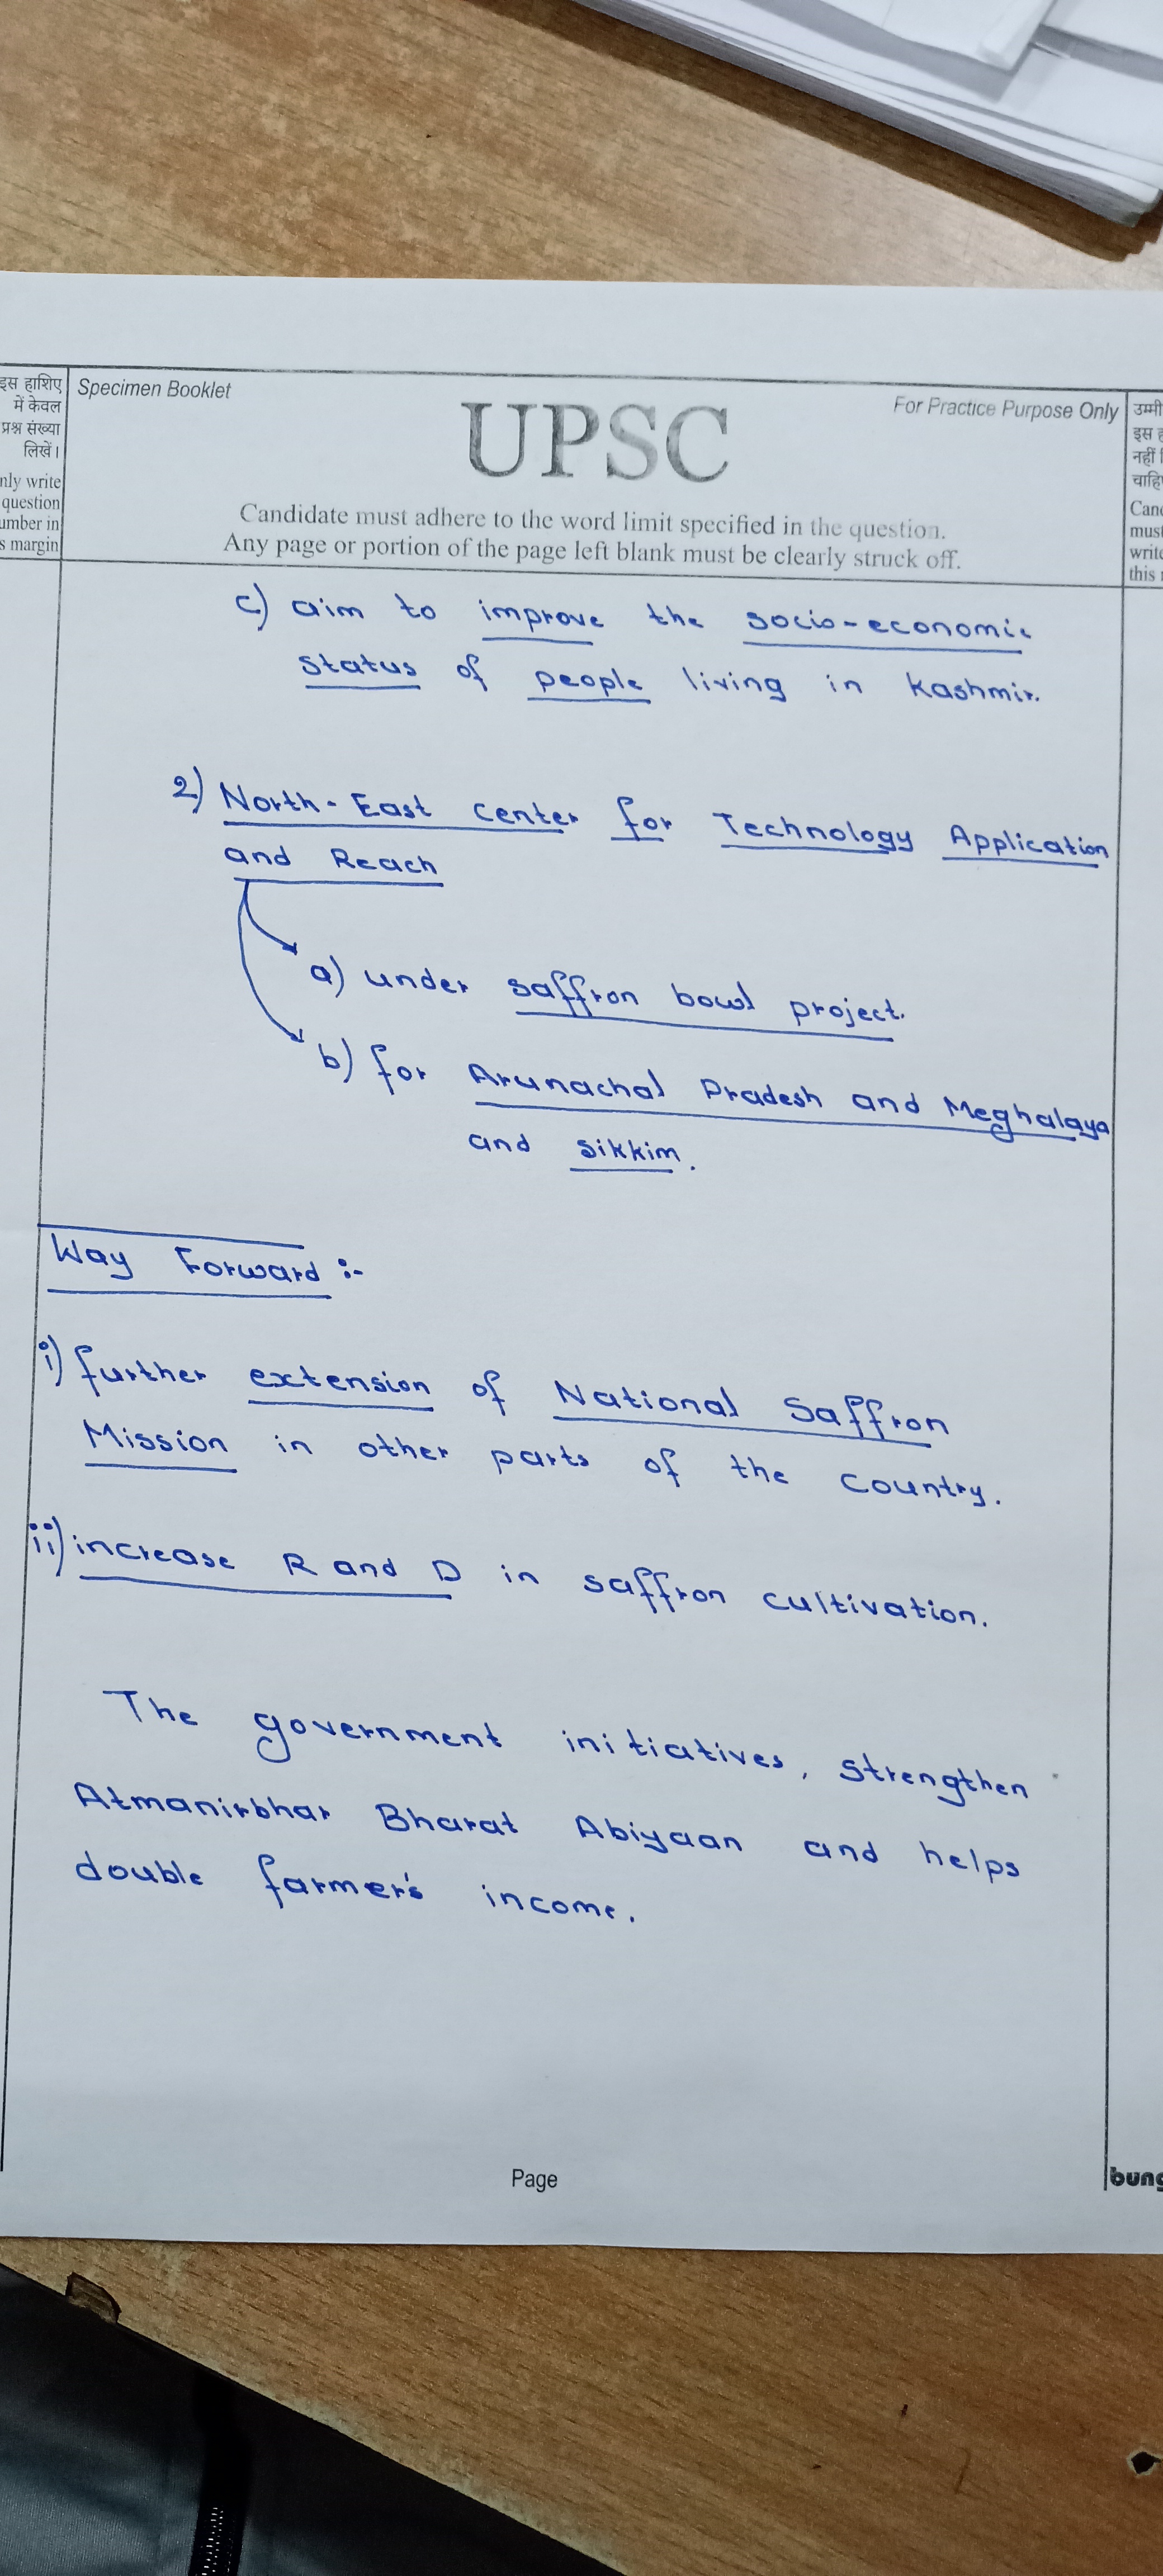 इस हाशिए
में केवल
प्रश्न संख्या
लिखें।
nly write
question
umber in
s margin
Specimen Booklet
For Practice Purpose Only
UPSC
Candidate must adhere to the word limit specified in the question.
Any page or portion of the page left blank must be clearly struck off.
उम्मी
इस ह
नहीं f
चाहि
Cand
must
write
this
c) aim to improve the socio-economic
status of people living in Kashmir.
2) North-East center for Technology Application
and Reach
a) under saffron bowl project.
b) for Arunachal Pradesh and Meghalaya
and sikkim.
Way Forward :-
i) further extension of National Saffron
Mission in other parts of the country.
ii) increase R and D in saffron cultivation.
The government initiatives, strengthen
Atmanirbhar Bharat Abiyaan and helps
double farmer's income.
Page
bung